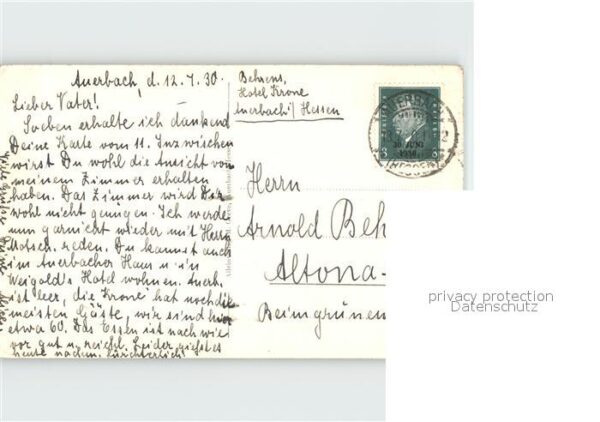 Auerbach, d. 12.7.30.
Lieber Vater!
Soeben erhalte ich dankend
Deine Karte vom 11. Inzwischen
wirst Du wohl die Ansicht von
meinem Zimmer erhalten
haben. Das Zimmer wird Dir
wohl nicht genügen. Ich werde
nun garnicht wieder mit Herrn
Motsch. reden. Du kannst auch
im Auerbacher Haus u. in
Weigold's Hotel wohnen. Auerb.
ist leer, die Krone hat noch die
meisten Gäste, wir sind hier
etwa 60. Das Essen ist nach wie
vor gut u. reichl. Leider giesst es
heute nachm. fürchterlich!
Behrens,
Hotel Krone
Auerbach i/Hessen
AUERBACH
(HESSEN)
30. JUNI
1930
3
Herrn
Arnold Beh
Altona-
Beim grünen
privacy protection
Datenschutz